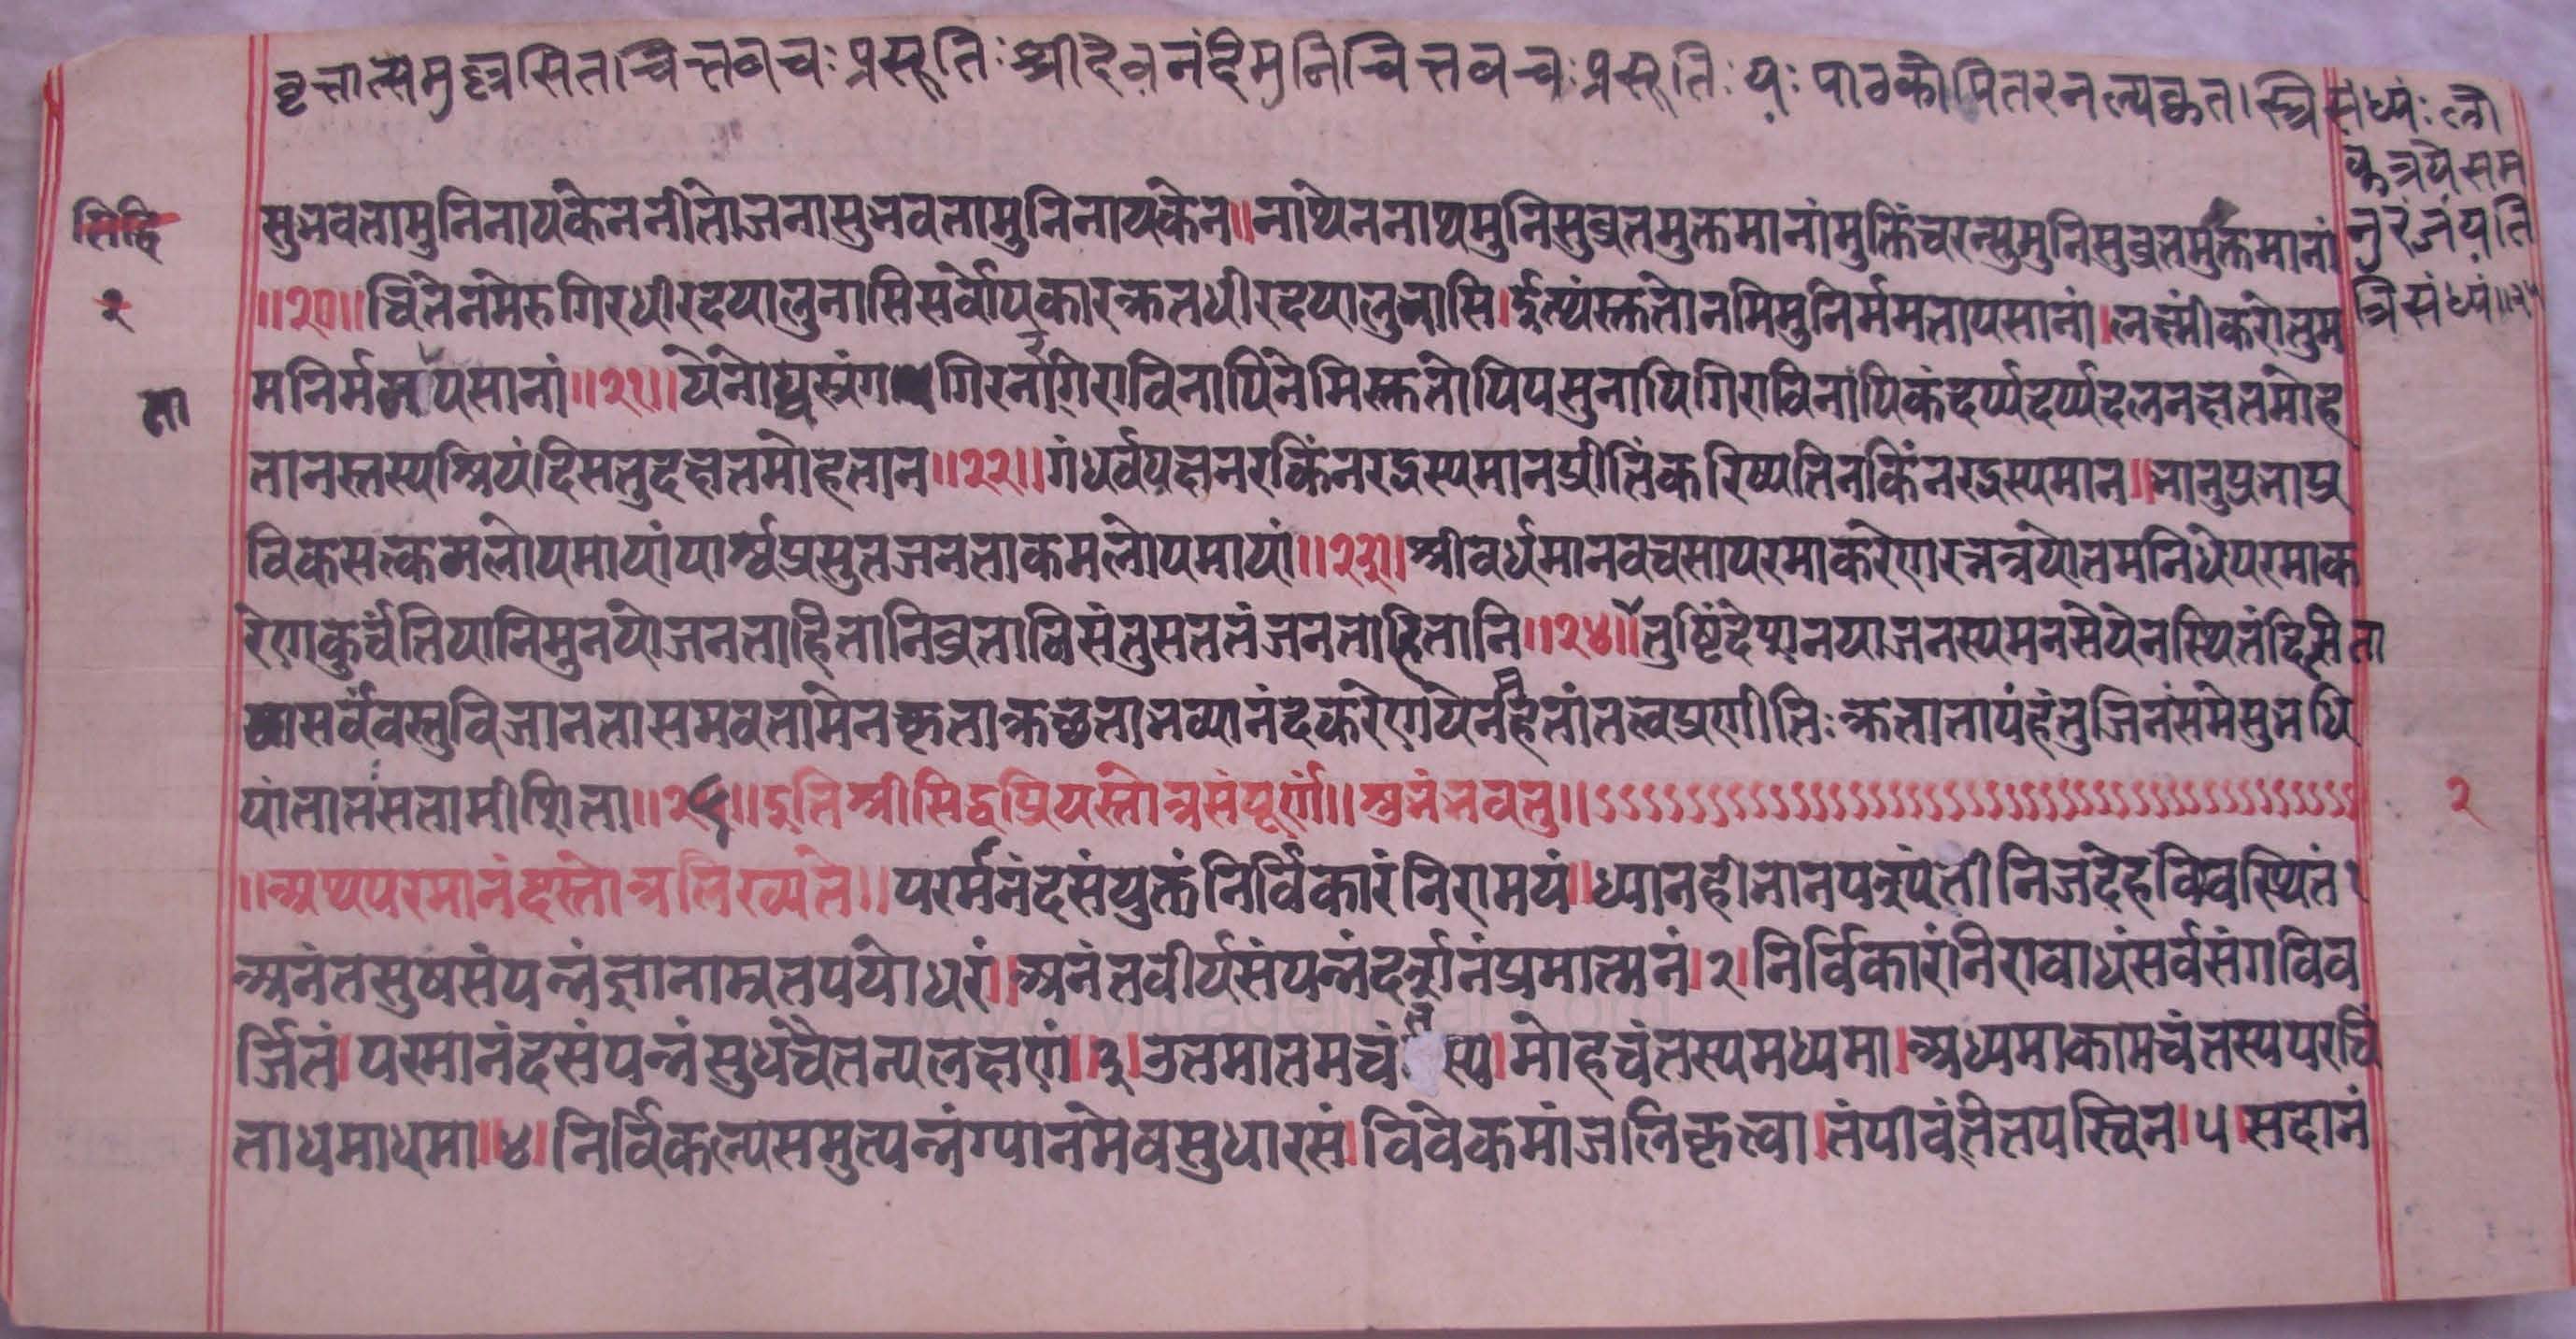 वृत्तात्समुल्लसितचित्तवचः प्रसूतिः श्रीदेवनंदिमुनिचित्तवचः प्रसूतिः यः पाठकोपितरनल्पकृत। स्त्रिसंध्यं: लो
कत्रयं सम
नुरंजयति
त्रिसंध्यं॥२५
सुभवतामुनिनायकेननीतोजनासुभवतामुनिनायकेन॥नाथेननाथमुनिसुव्रतमुक्तमानांमुक्तिंचरन्सुमुनिसुव्रतमुक्तमानां
॥२०॥चित्तेनमेरुगिरधीरदयालुनासिसर्वोपकारकृतधीरदयालुनासि।इत्थंस्तुतोनमिमुनिर्ममतापसानां।लक्ष्मींकरोतुम
मनिर्ममतापसानां॥२१॥येनोघशृंगगिरनारगिराविनापिनेमिस्तुतोपिपसुनापिगिराविनापिकंदर्प्पदर्प्पदलनक्षतमोह
तानस्तस्यश्रियंदिसतुदक्षतमोहतान॥२२॥गंधर्वयक्षनरकिंनरदृस्यमानप्रीतिंकरिष्यतिनकिंनरदृस्यमान॥भानुप्रभाप्र
विकसत्कमलोपमायांपार्श्वप्रसुतजनताकमलोपमायां॥२३॥श्रीवर्धमानवचसापरमाकरेणरत्नत्रयोतमनिधेपरमाक
रेणकुर्वंतियानिमुनयोजनताहितानिव्रताविसंतुसततंजनताहितानि॥२४॥तुष्टिंदेशनयाजनस्यमनसेयेनस्थितंदिसिता
सर्वंवस्तुविजानतासमवतामेनकृताकृछताभव्यानंदकरेणयेनमहितांतत्वप्रणीतिःकृतातापंहंतुजिनंसमेसुभधि
यांतातंसतामीशिता॥२५॥इतिश्रीसिद्धप्रियस्तोत्रसंपूर्णं॥शुभंभवतु॥
॥अथपरमानंदस्तोत्रलिख्यते॥परमानंदसंयुक्तंनिर्विकारंनिरामयं॥ध्यानहीनानपश्यंतीनिजदेहविवस्थितं१
अनंतसुषसंपन्नंज्ञानामृतपयोधरं।अनंतवीर्यसंपन्नंदर्शनंप्रमात्मनं।२।निर्विकारंनिरावाधंसर्वसंगविव
र्जितं।परमानंदसंपन्नंसुधंचैतन्यलक्षणं॥३।उतमातमचंस्य।मोहचंतस्यमध्यमा।अध्यमाकामचंतस्यपरचिं
ताधमाधमा॥४।निर्विकल्पसमुत्पन्नंग्यानमेवसुधारसं।विवेकमांजलिकृत्वा।तंपीवंतितपस्विन।५।सदानं
ता
२
२